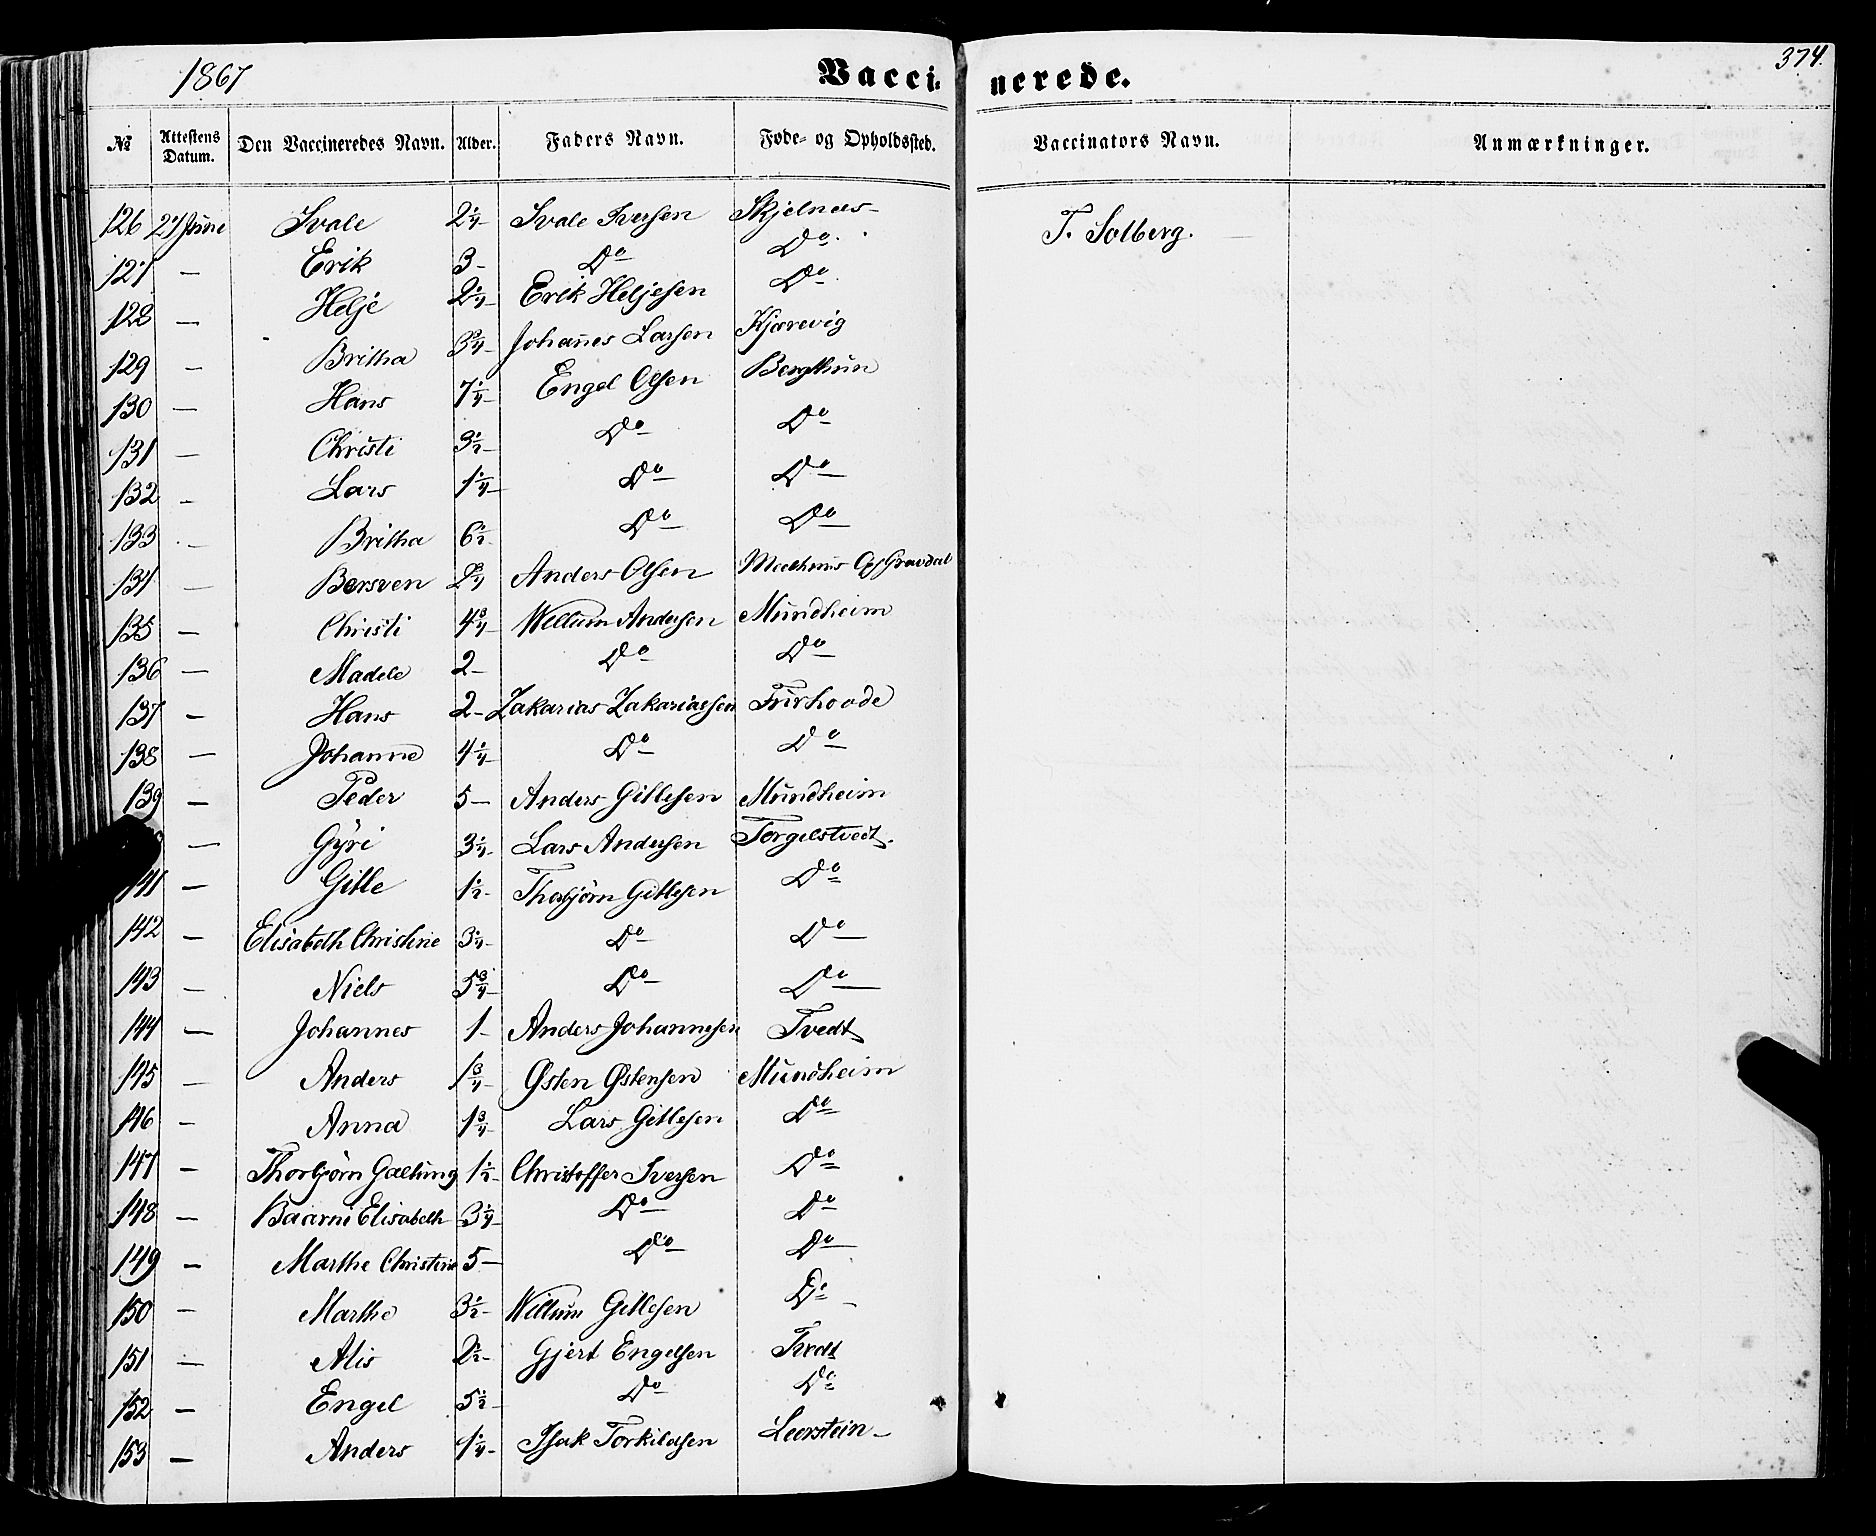 1867 Vacci- nerede. 374.
№ Attestens Datum. Den Vaccineredes Navn. Alder. Faders Navn. Føde- og Opholdssted. Vaccinators Navn. Anmærkninger.
126 27 June Ivale 2 1/4 Ivale Iversen Skjelnes T. Solberg.
127 — Erik 3 - Do Do
128 — Helje 2 1/4 Erik Heljesen Do
129 — Britha 3 3/4 Johannes Larsen Kjærevig
130 — Hans 7 1/4 Engel Olsen Bergthun
131 — Christi 3 1/2 Do Do
132 — Lars 1 1/4 Do Do
133 — Britha 6 1/2 Do Do
134 — Bersven Anders Olsen
135 — Christi 4 3/4 Willum Andersen Mundheim
136 — Madele 2 - Do Do
137 — Hans 2 - Zakarias Zakariassen
138 — Johanne 4 1/4 Do Do
139 — Peder 5 — Anders Gitlesen Mundheim
— Gÿri 3 1/4 Lars Andersen Torgilstvedt.
141 — Gitle 1 1/2 Thorbjörn Gitlesen Do
142 — Elisabeth Christine 3 1/4 Do Do
143 — Niels 5 3/4 Do Do
144 — Johannes 1 - Anders Johannesen Tvedt
145 — Anders 1 3/4 Østen Østensen Mundheim
146 — Anna 1 3/4 Lars Gitlesen Do
147 — Thorbjörn Gaeltung 1 1/2 Christoffer Iversen Do
148 — Baarni Elisabeth 3 1/4 Do Do
149 — Marthe Christine 5 — Do Do
150 — Marthe 3 1/2 Willum Gitlesen Do
151 — Alis 2 1/2 Gjert Engelsen Tvedt
152 — Engel 5 1/2 Do Do
153 — Anders 1 1/4 Isak Torkildsen Leerstein